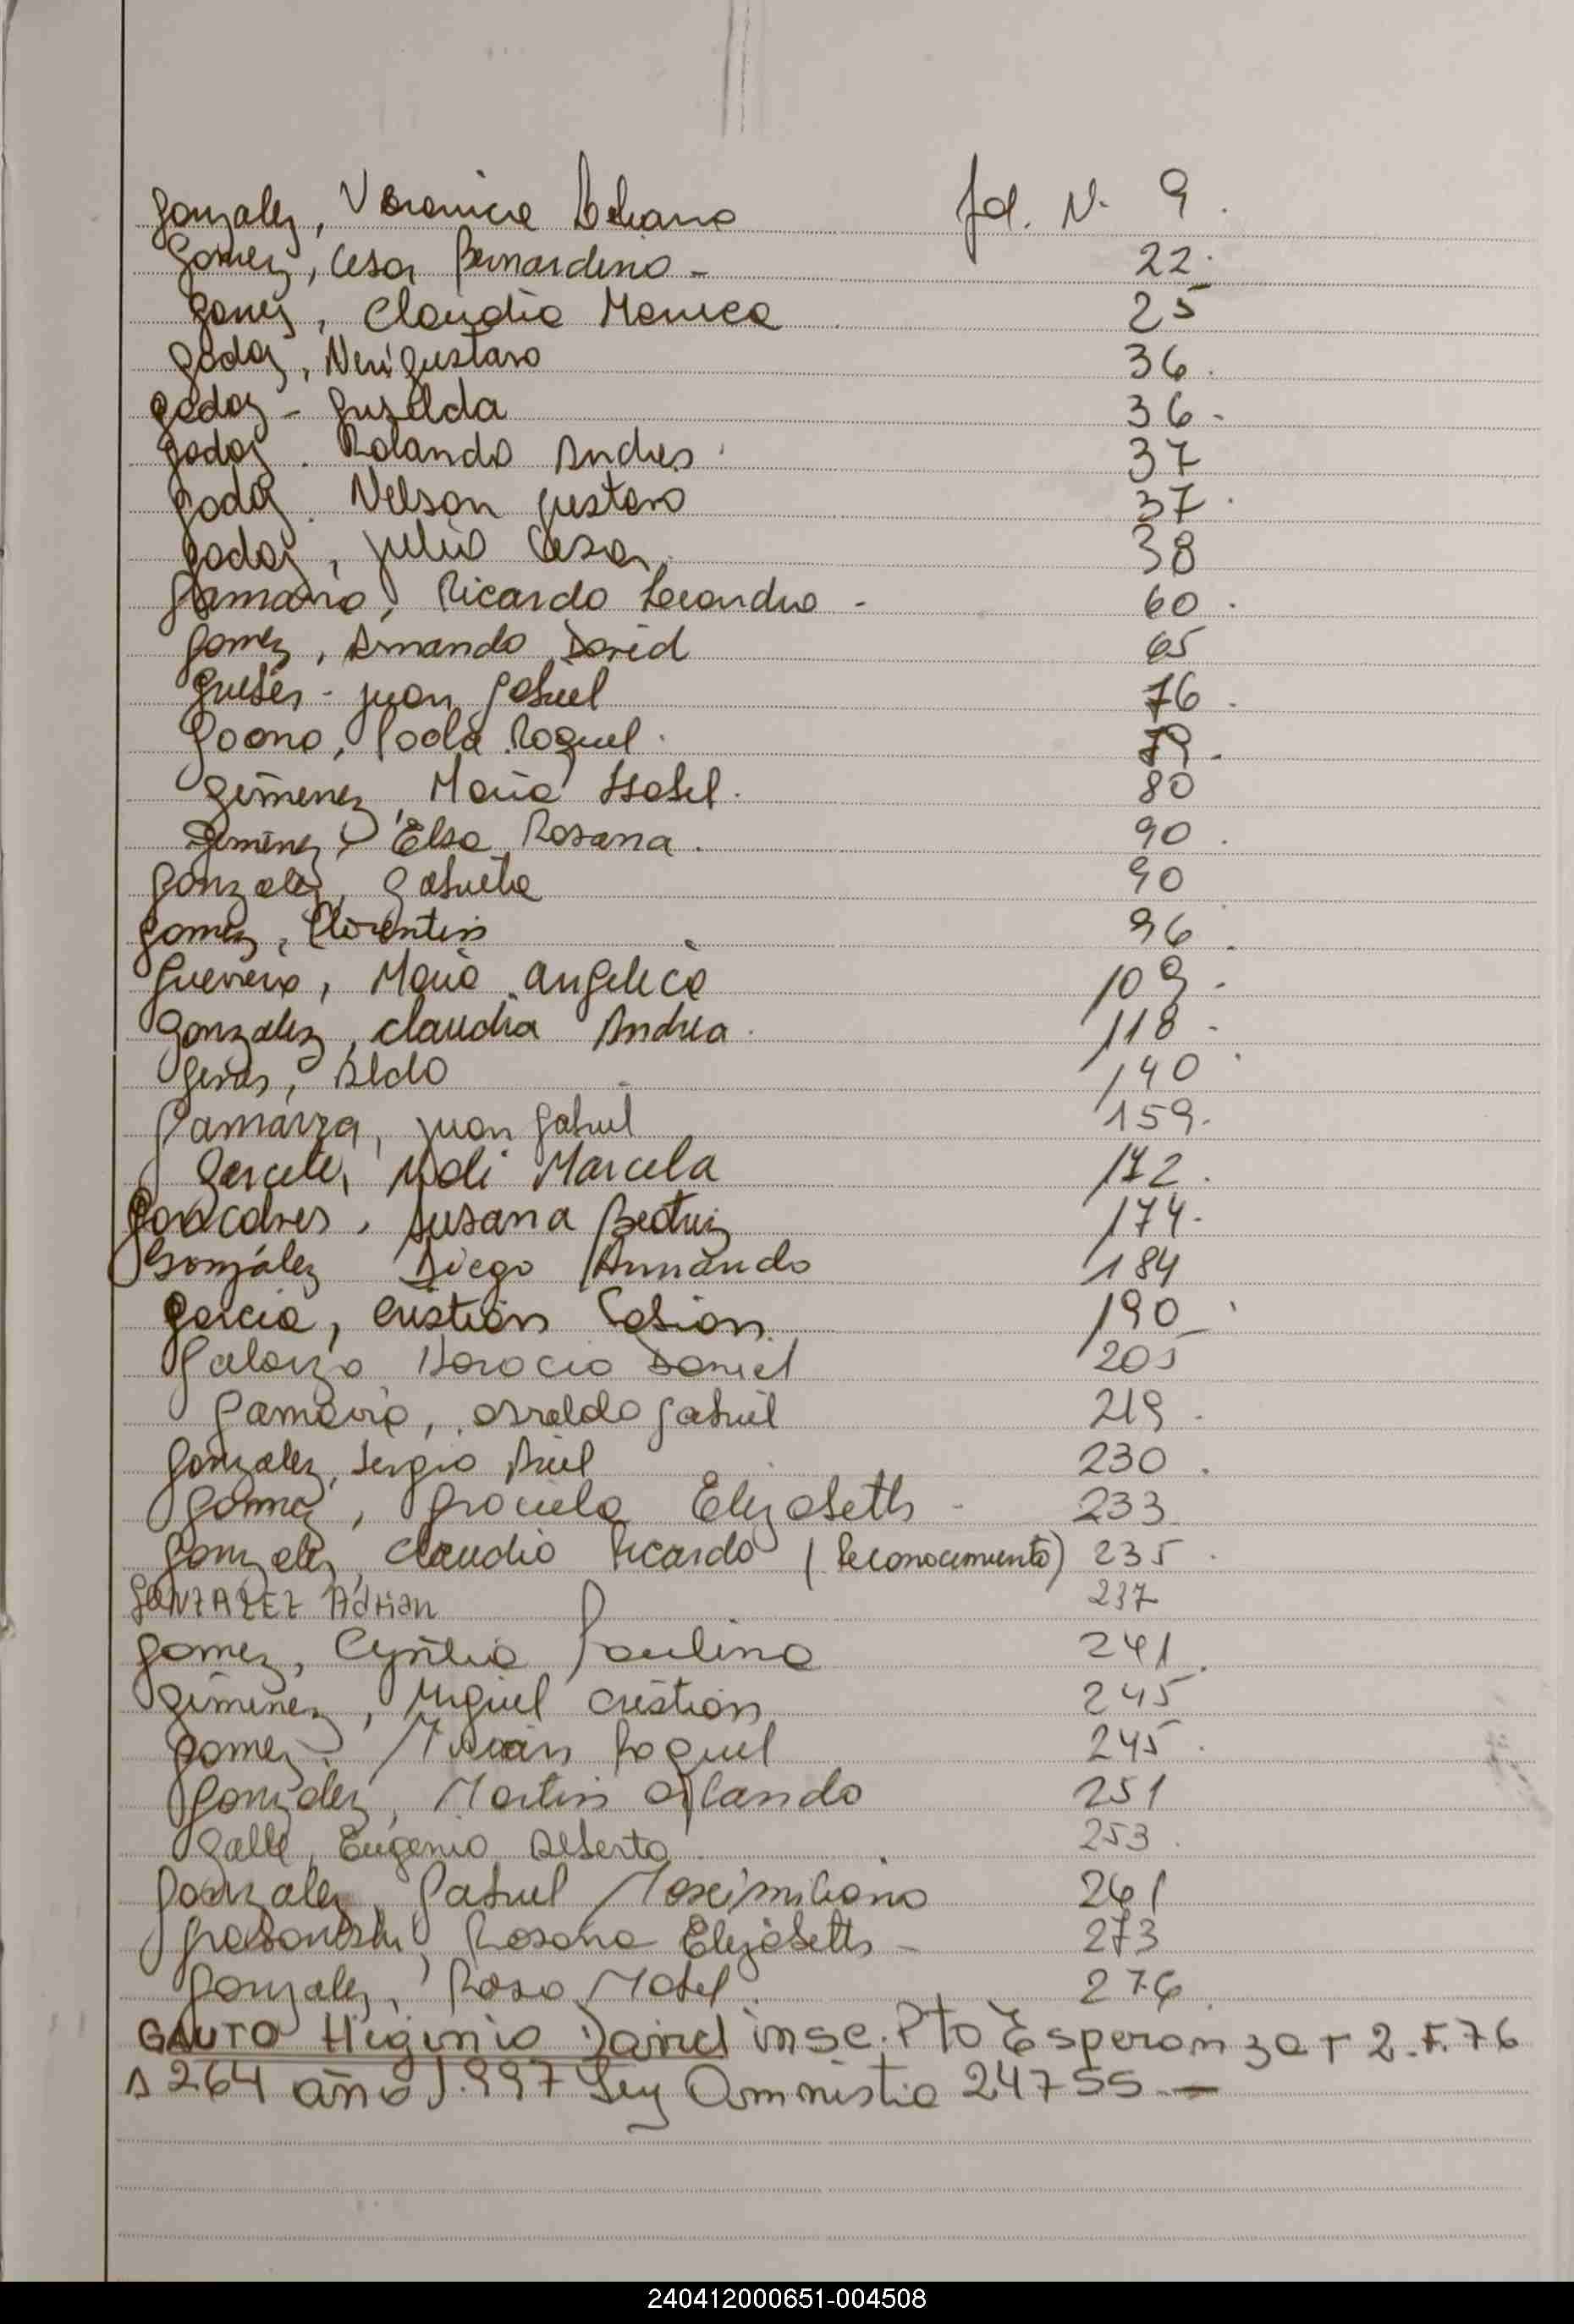 Gonzalez, Veronica Liliana fol. N. 9.
Gomez, Cesar Bernardino - 22.
Gomez, Claudia Monica 25
Godoy, Neri Gustavo 36.
Godoy - Griselda 36.
Godoy. Rolando Andres. 37
Godoy. Nelson Gustavo 37.
Godoy, Julio Cesar. 38
Gamarra, Ricardo Leandro - 60.
Gomez, Armando David 65
Juan Gabriel 76.
Gaona, Paola Raquel. 79.
Gimenez, Maria Isabel. 80
Gimenez, Elsa Rosana. 90.
Gonzalez, Gabriela 90
Gomez, Florentin 96.
Guerrero, Maria Angelica 109.
Gonzalez, Claudia Andrea. 118.
Aldo 140.
Gamarra, Juan Gabriel 159.
Marcela 172.
Goncalves, Susana Beatriz 174.
González Diego Armando 184
Garcia, Cristian Fabian. 190.
Galarza Horacio Daniel 205
Gamarra, Osvaldo Gabriel 219.
Gonzalez, Sergio Ariel 230.
Gomez, Graciela Elizabeth - 233
Gonzalez, Claudio Ricardo (Reconocimiento) 235.
GONZALEZ Adrian 237
Gomez, Cynthia Paulina 241.
Gimenez, Miguel Cristian 245
Gomez. Raquel 245.
Gonzalez, Martin Orlando 251
Galle, Eugenio Alberto. 253.
Gonzalez, Gabriel Maximiliano 261
Rosana Elizabeth - 273
Gonzalez, Rosa Mabel. 276.
GAUTO Higinio Daniel insc. Pto Esperanza T 2. F. 76
A 264 año 1.997 Ley Amnistia 24755 -
240412000651-004508